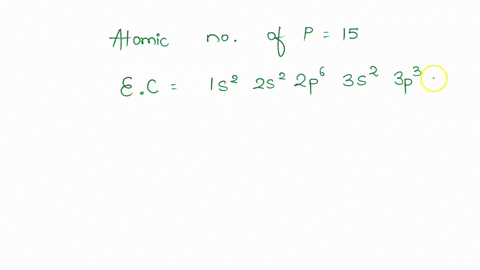 Atomic no. of P = 15
E.C = 1s² 2s² 2p⁶ 3s² 3p³